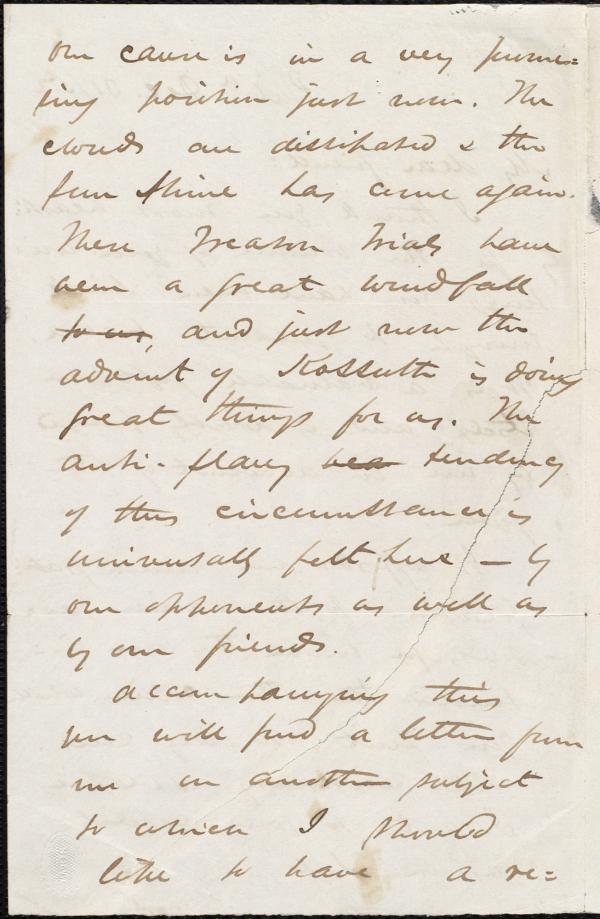 our cause is in a very promi=
sing position just now. The
clouds are dissipated & the
sun shine has come again.
These Treason Trials have
been a great windfall
to us, and just now the
advent of Kossuth is doing
great things for us. The
anti-slavery tendency
of this circumstance is
universally felt here – by
our opponents as well as
by our friends.
accompanying this
you will find a letter from
me on another subject
to which I should
like to have a re=